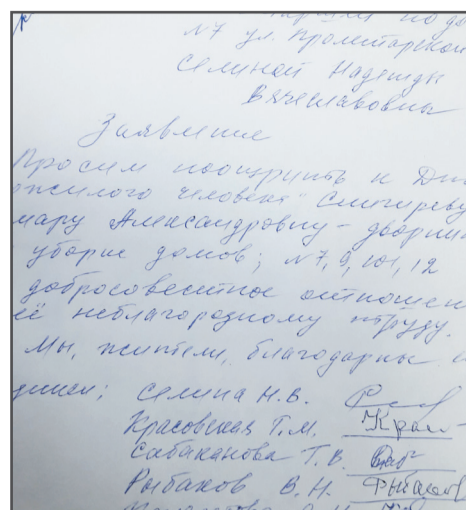 по до
№7 ул. Пролетарской
Семиной Надежды
Вячеславовны
Заявление
Просим поощрить к Дн
ожилого человека" Снигиреву
мару Александровну - дворни
уборке домов; №7, 9, 10, 12
добросовестное отношен
её неблагородному труду.
Мы, жители, благодарны
дписи; Семина Н.В.
Красовская Т.М.
Сабаканова Т.В.
Рыбаков В.Н. Рыбаков